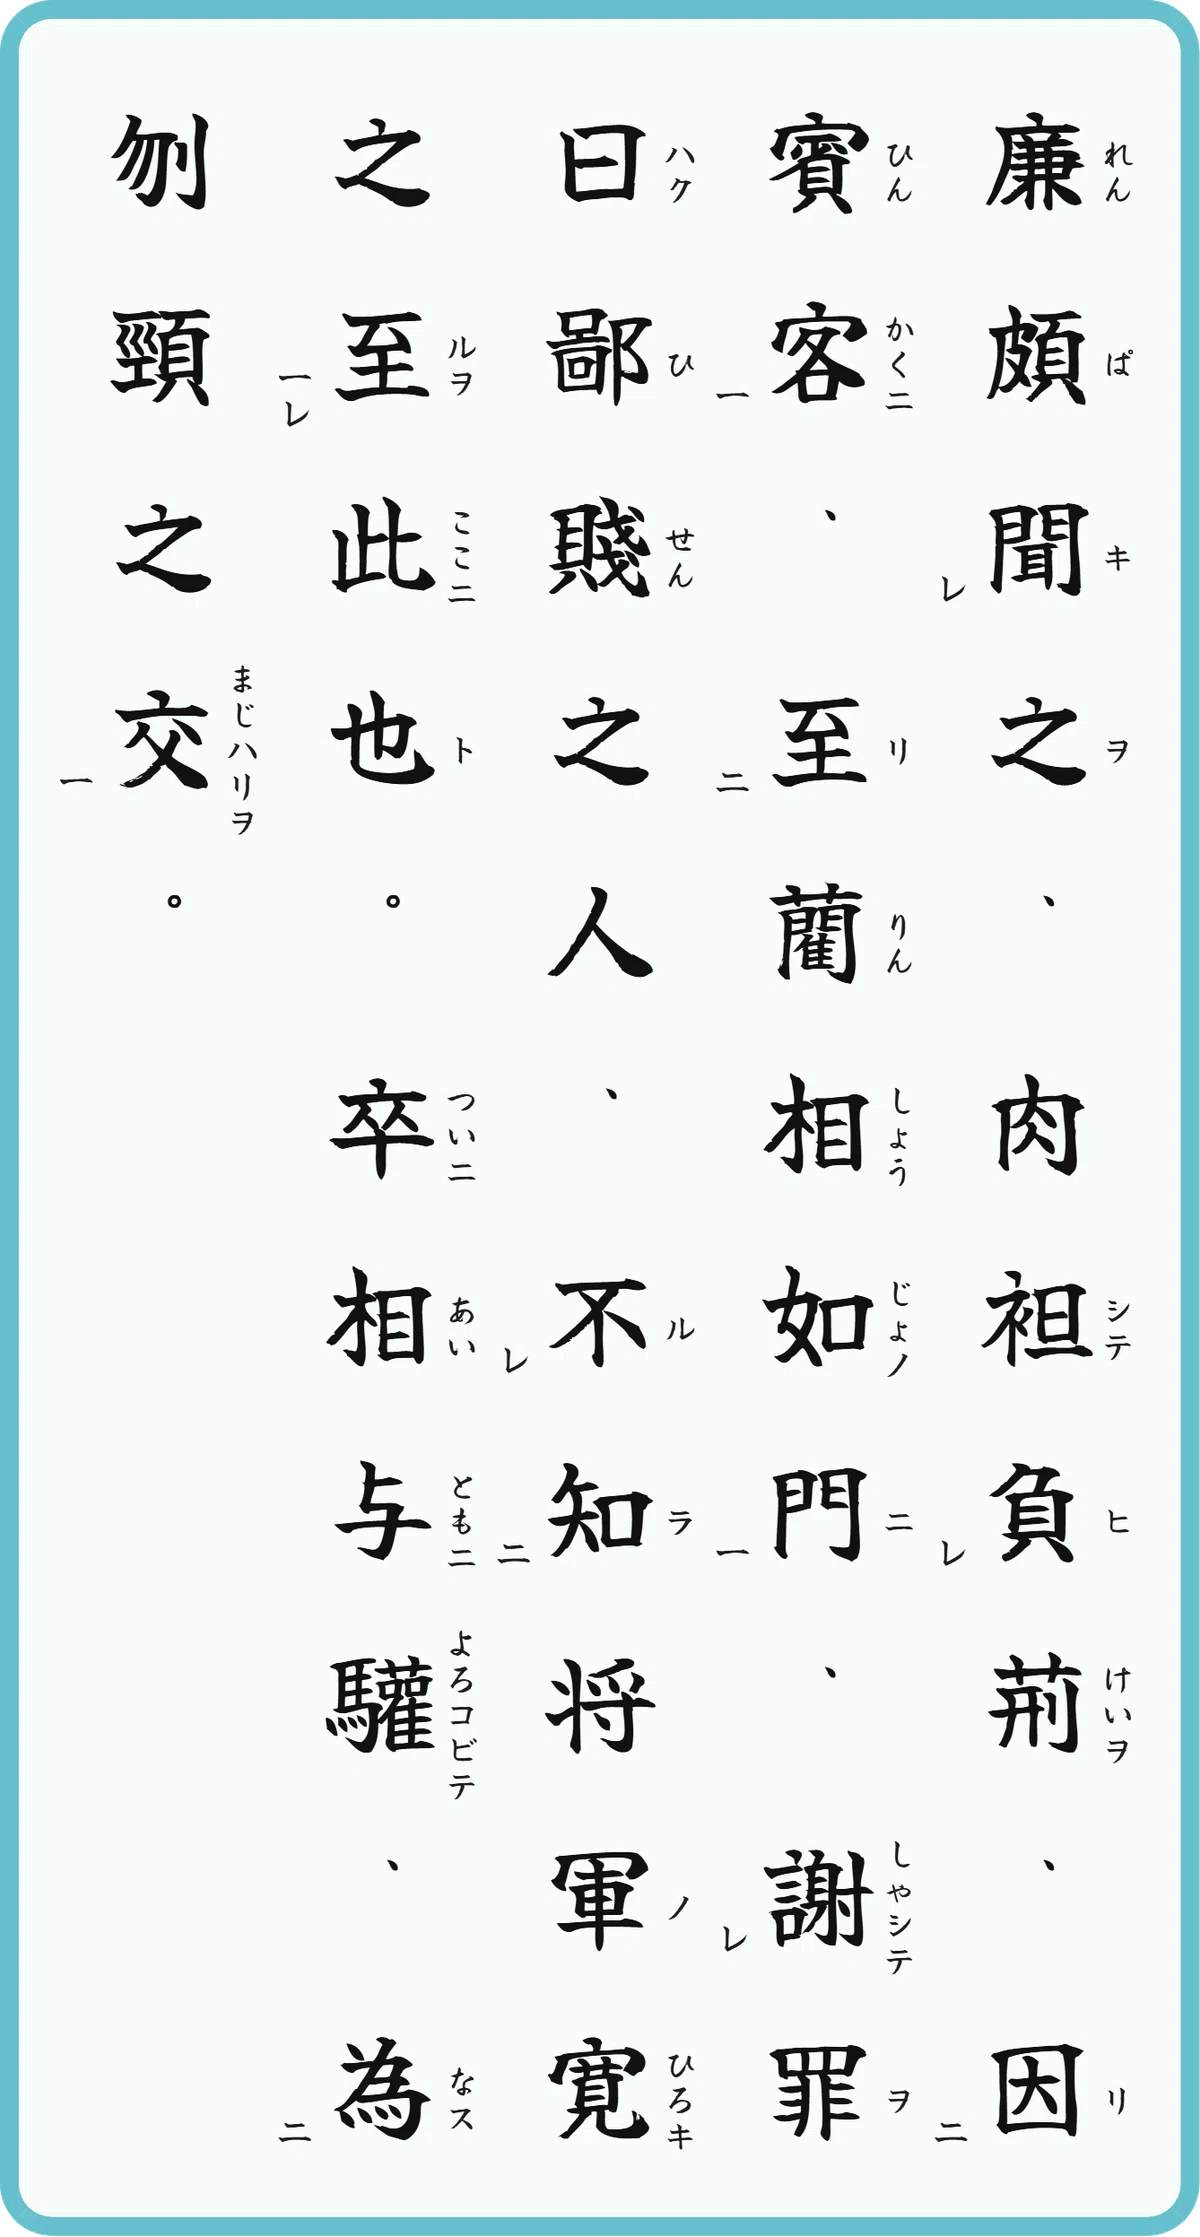 廉頗聞之、肉袒負荊、因
れん ぱ キ ヲ シテ ヒ けいヲ リ
レ レ 二
賓客、至藺相如門、謝罪
ひん かくニ リ りん しょう じょノ ニ しゃシテ ヲ
一 二 一 レ
曰鄙賤之人、不知将軍寛
ハク ひ せん ル ラ ノ ひろキ
レ 二
之至此也。卒相与驩、為
ルヲ ここニ ト ついニ あい ともニ よろコビテ なス
一レ 二
刎頸之交。
まじハリヲ
一